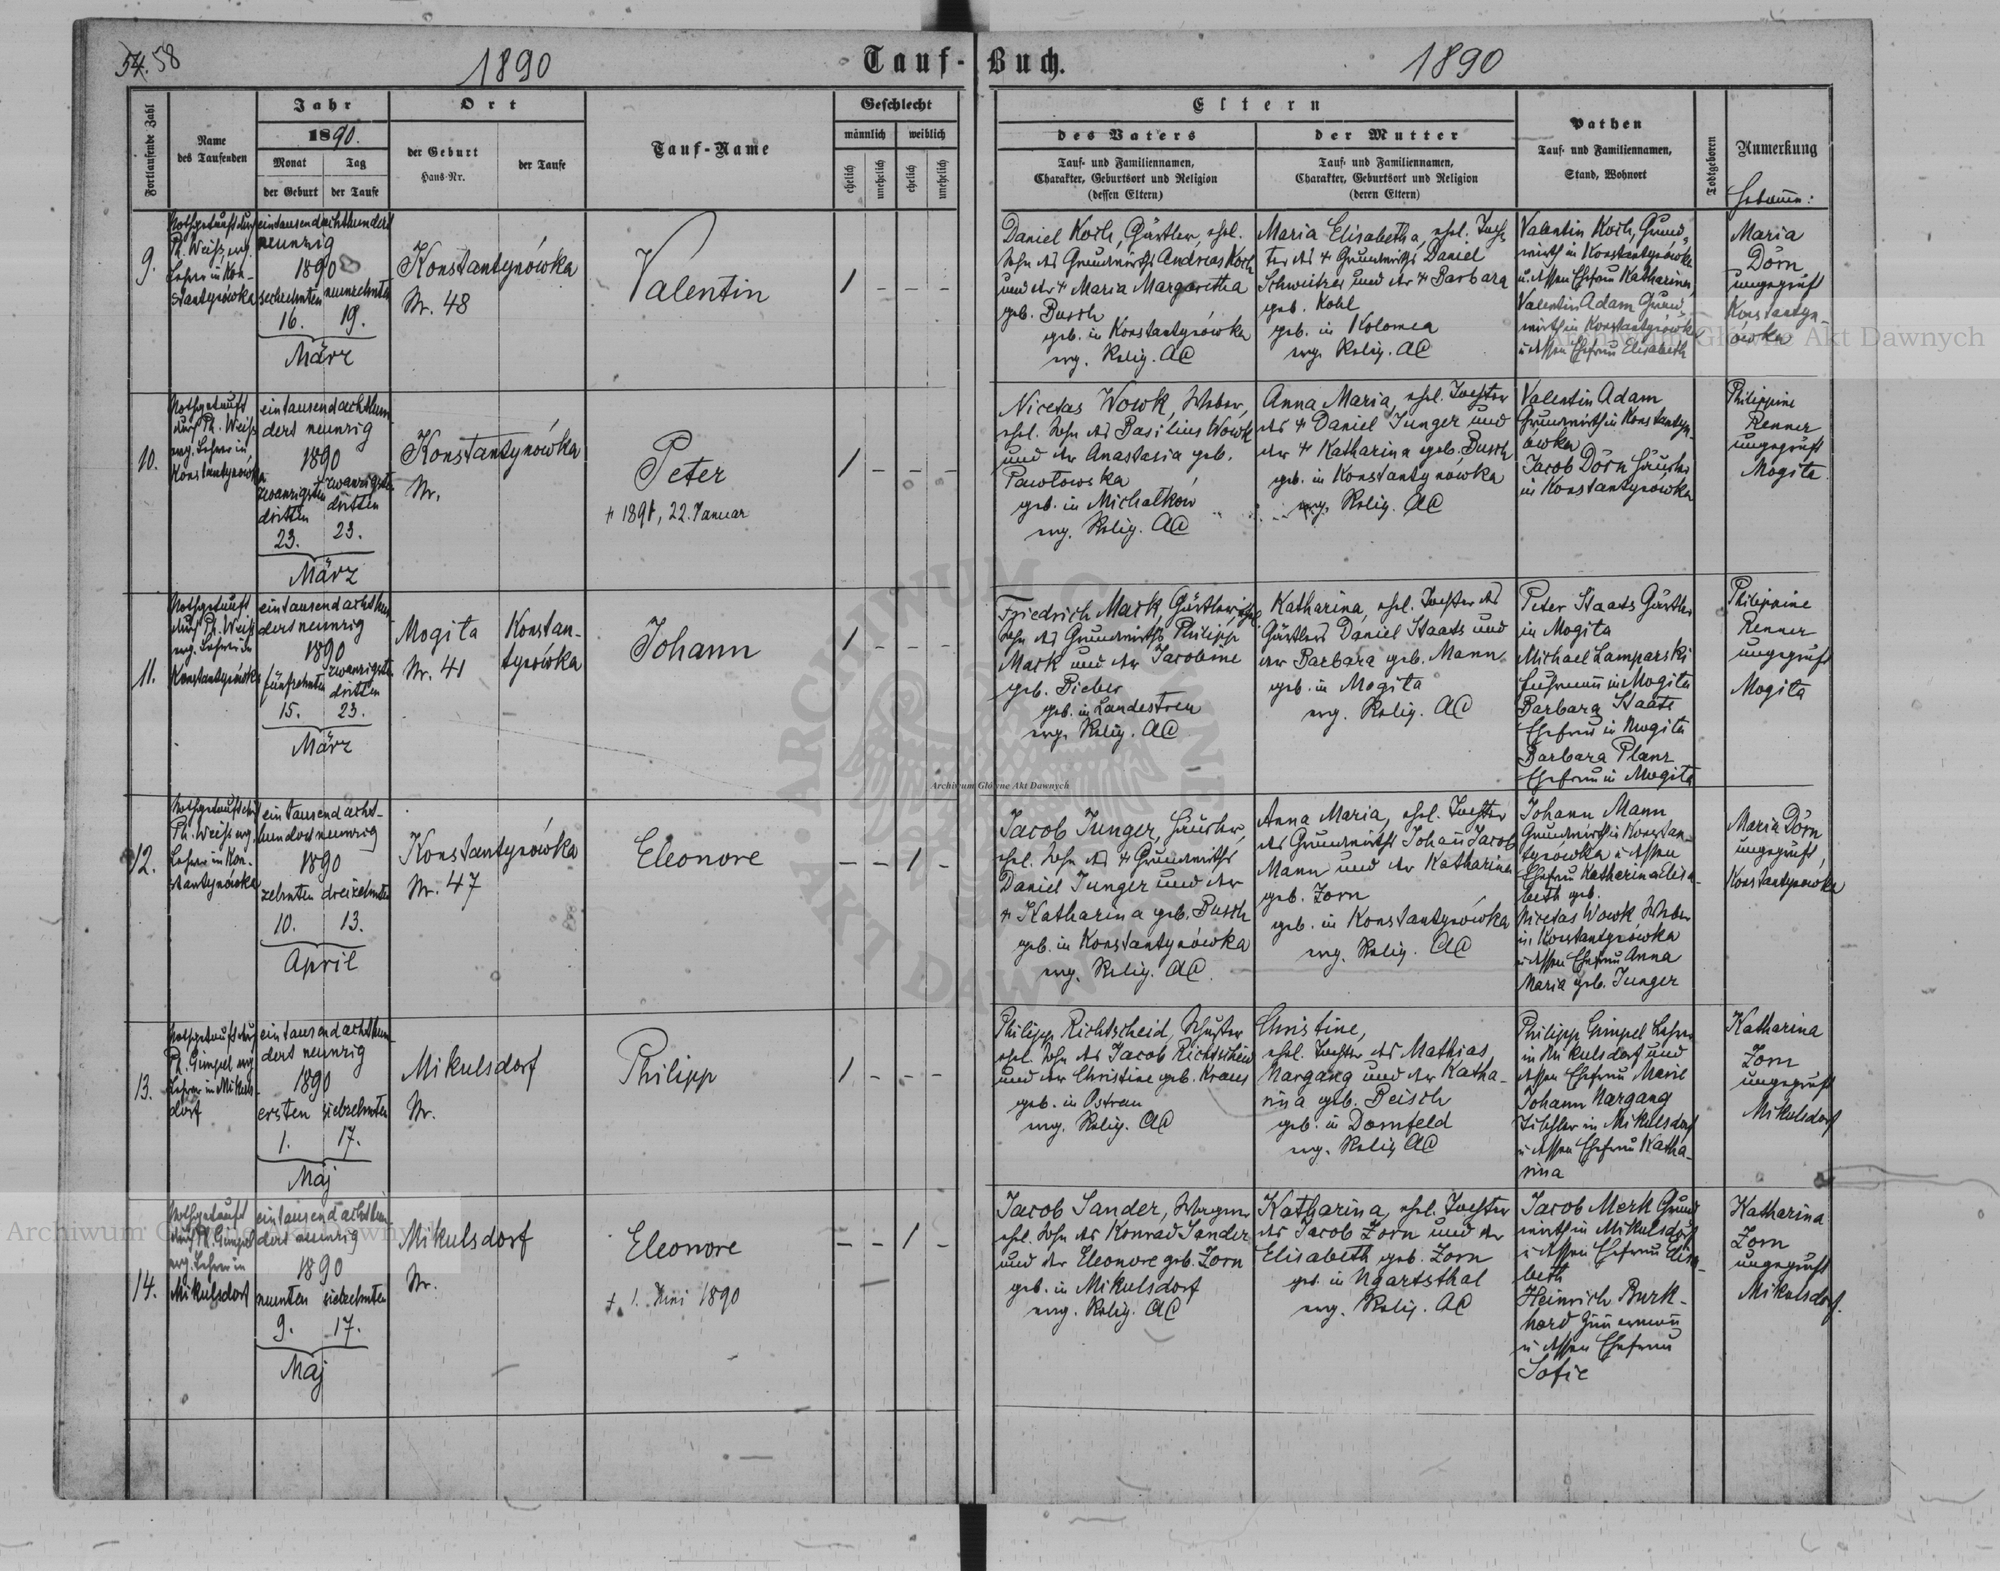 54. 58
1890
Tauf-Buch.
1890
Fortlaufende Zahl
Name
des Taufenden
Jahr
1890.
Monat
Tag
der Geburt
der Taufe
Ort
der Geburt
Haus-Nr.
der Taufe
Tauf-Name
Geschlecht
männlich
weiblich
ehelich
unehelich
ehelich
unehelich
Eltern
des Vaters
Tauf- und Familiennamen,
Charakter, Geburtsort und Religion
(dessen Eltern)
der Mutter
Tauf- und Familiennamen,
Charakter, Geburtsort und Religion
(deren Eltern)
Pathen
Tauf- und Familiennamen,
Stand, Wohnort
Todtgeboren
Anmerkung
Hebamme:
9.
Nothgetauft durch
Ph. Weiß, evg.
Lehrer in Kon-
stantynówka
eintausendachthundert
neunzig
1890
sechzehnten neunzehnten
16. 19.
März
Konstantynówka
Nr. 48
Valentin
1 - - -
Daniel Koch, Gärtler, ehel.
Sohn des Grundwirths Andreas Koch
und der + Maria Margaretha
geb. Busch
geb. in Konstantynówka
evg. Relig. AC
Maria Elisabetha, ehel. Toch-
ter des + Grundwirths Daniel
Schweitzer und der + Barbara
geb. Kohl
geb. in Kolomea
evg. Relig. AC
Valentin Koch, Grund-
wirth in Konstantynówka
u. dessen Ehefrau Katharina
Valentin Adam Grund-
wirth in Konstantynówka
u dessen Ehefrau Elisabeth
Maria
Dörn
ungeprüft
Konstantyn-
ówka
10.
Nothgetauft
durch Ph. Weiß
evg. Lehrer in
Konstantynówka
eintausendachthun-
dert neunzig
1890
zwanzigsten zwanzigsten
dritten dritten
23. 23.
März
Konstantynówka
Nr.
Peter
+ 1891, 22. Januar
1 - - -
Nicetas Wowk, Weber,
ehel. Sohn des Basilius Wowk
und der Anastasia geb.
Pawlowska
geb. in Michalków
evg. Relig. AC
Anna Maria, ehel. Tochter
des + Daniel Junger und
der + Katharina geb. Busch
geb. in Konstantynówka
evg. Relig. AC
Valentin Adam
Grundwirth in Konstantyn-
ówka
Jacob Dörn Häusler
in Konstantynówka
Philippine
Renner
ungeprüft
Mogila
11.
Nothgetauft
durch Ph. Weiß
evg. Lehrer in
Konstantynówka
eintausendachthun-
dertneunzig
1890
fünfzehnten zwanzigsten
dritten
15. 23.
März
Mogila
Nr. 41
Konstan-
tynówka
Johann
1 - - -
Friedrich Mark, Gärtler, ehel.
Sohn des Grundwirths Philipp
Mark und der Jacobine
geb. Bieber
geb. in Landestreu
evg. Relig. AC
Katharina, ehel. Tochter des
Gärtlers Daniel Staats und
der Barbara geb. Mann
geb. in Mogila
evg. Relig. AC
Peter Staats Gärtler
in Mogila
Michael Lamparski
Fuhrmann in Mogila
Barbara Staats
Ehefrau in Mogila
Barbara Planz
Ehefrau in Mogila
Philippine
Renner
ungeprüft
Mogila
12.
Nothgetauft durch
Ph. Weiß evg.
Lehrer in Kon-
stantynówka
eintausendacht-
hundertneunzig
1890
zehnten dreizehnten
10. 13.
April
Konstantynówka
Nr. 47
Eleonore
- - 1 -
Jacob Junger, Häusler,
ehel. Sohn des + Grundwirths
Daniel Junger und der
+ Katharina geb. Busch
geb. in Konstantynówka
evg. Relig. AC.
Anna Maria, ehel. Tochter
des Grundwirths Johann Jacob
Mann und der Katharina
geb. Zorn
geb. in Konstantynówka
evg. Relig. AC
Johann Mann
Grundwirth in Konstan-
tynówka u dessen
Ehefrau Katharina Elisa-
beth geb.
Nicetas Wowk Weber
in Konstantynówka
u dessen Ehefrau Anna
Maria geb. Junger
Maria Dörn
ungeprüft,
Konstantynówka
13.
Nothgetauft durch
Ph. Gimpel evg
Lehrer in Mikuls-
dorf
eintausendachthun-
dert neunzig
1890
ersten siebzehnten
1. 17.
Maj
Mikulsdorf
Nr.
Philipp
1 - - -
Philipp Richtscheid, Schuster
ehel. Sohn des Jacob Richtscheid
und der Christine geb. Kraus
geb. in Ostrau
evg. Relig. AC
Christine,
ehel. Tochter des Mathias
Nargang und der Katha-
rina geb. Beisch
geb. in Dornfeld
evg. Relig AC
Philipp Gimpel Lehrer
in Mikulsdorf und
dessen Ehefrau Marie
Johann Nargang
Tischler in Mikulsdorf
u dessen Ehefrau Katha-
rina
Katharina
Zorn
ungeprüft
Mikulsdorf
14.
Nothgetauft
durch Ph. Gimpel
evg. Lehrer in
Mikulsdorf
eintausendachthun-
dert neunzig
1890
neunten siebzehnten
9. 17.
Maj
Mikulsdorf
Nr.
Eleonore
+ 1. Juni 1890
- - 1 -
Jacob Sander, Wagner
ehel. Sohn des Konrad Sander
und der Eleonore geb. Zorn
geb. in Mikulsdorf
evg. Relig. AC
Katharina, ehel. Tochter
des Jacob Zorn und der
Elisabeth geb. Zorn
geb. in Ugartsthal
evg. Relig. AC
Jacob Merk Grund
wirth in Mikulsdorf
u dessen Ehefrau Elisa-
beth
Heinrich Burk-
hard
u dessen Ehefrau
Sofie
Katharina
Zorn
ungeprüft
Mikulsdorf.
Archiwum Główne Akt Dawnych
Archiwum Główne Akt Dawnych
Archiwum Główne Akt Dawnych
ARCHIWUM GŁÓWNE AKT DAWNYCH